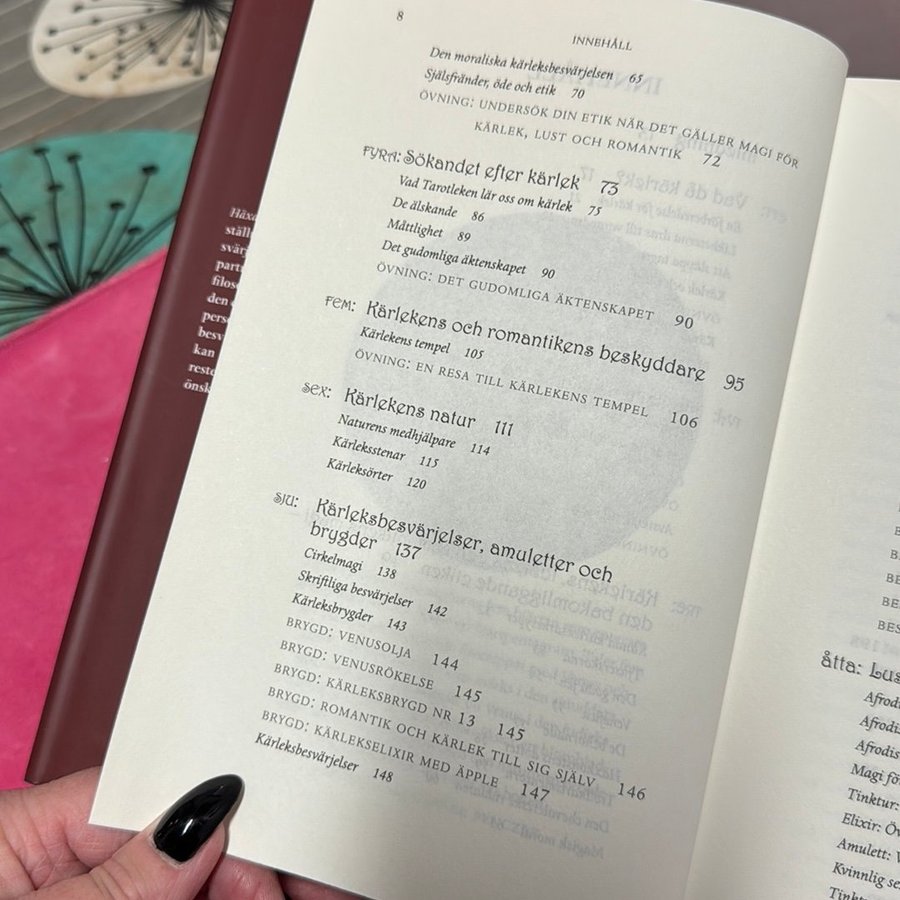 8
INNEHÅLL
Den moraliska kärleksbesvärjelsen 65
Själsfränder, öde och etik 70
ÖVNING: UNDERSÖK DIN ETIK NÄR DET GÄLLER MAGI FÖR
KÄRLEK, LUST OCH ROMANTIK 72
FYRA: Sökandet efter kärlek 73
Vad Tarotleken lär oss om kärlek 75
De älskande 86
Måttlighet 89
Det gudomliga äktenskapet 90
ÖVNING: DET GUDOMLIGA ÄKTENSKAPET 90
FEM: Kärlekens och romantikens beskyddare 95
Kärlekens tempel 105
ÖVNING: EN RESA TILL KÄRLEKENS TEMPEL 106
SEX: Kärlekens natur 111
Naturens medhjälpare 114
Kärleksstenar 115
Kärleksörter 120
SJU: Kärleksbesvärjelser, amuletter och
brygder 137
Cirkelmagi 138
Skriftliga besvärjelser 142
Kärleksbrygder 143
BRYGD: VENUSOLJA 144
BRYGD: VENUSRÖKELSE 145
BRYGD: KÄRLEKSBRYGD NR 13 145
BRYGD: ROMANTIK OCH KÄRLEK TILL SIG SJÄLV 146
BRYGD: KÄRLEKSELIXIR MED ÄPPLE 147
Kärleksbesvärjelser 148
åtta: Lus
Afrodi
Afrodis
Afrodis
Magi fö
Tinktur:
Elixir: Öv
Amulett: V
Kvinnlig se
Tinkt